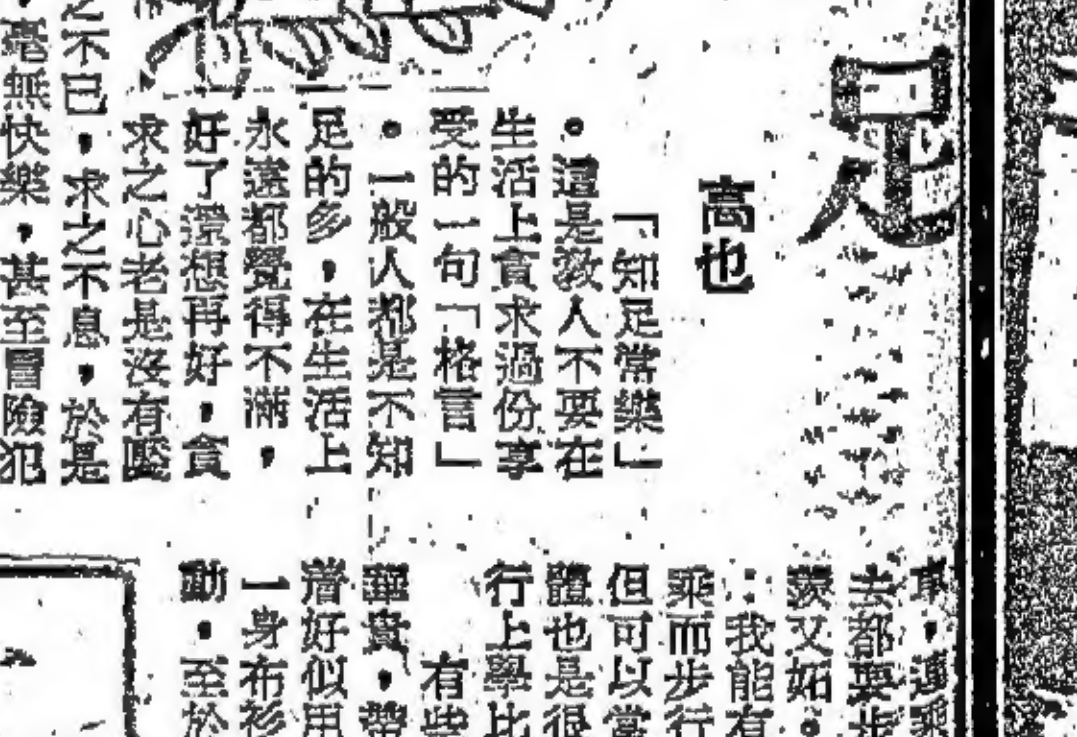 足
高也
「知足常樂」
。這是教人不要在
生活上貪求過份享
受的一句「格言」
。一般人都是不知
足的多，在生活上
永遠都覺得不滿，
好了還想再好，貪
求之心老是沒有饜
之不已，求之不息，於是
，毫無快樂，甚至冒險犯
去都要步
羨又妬。
：我能有
乘而步行
但可以當
體也是很
行上學比
有些
華貴，帶
着好似用
一身布衫
動，至於